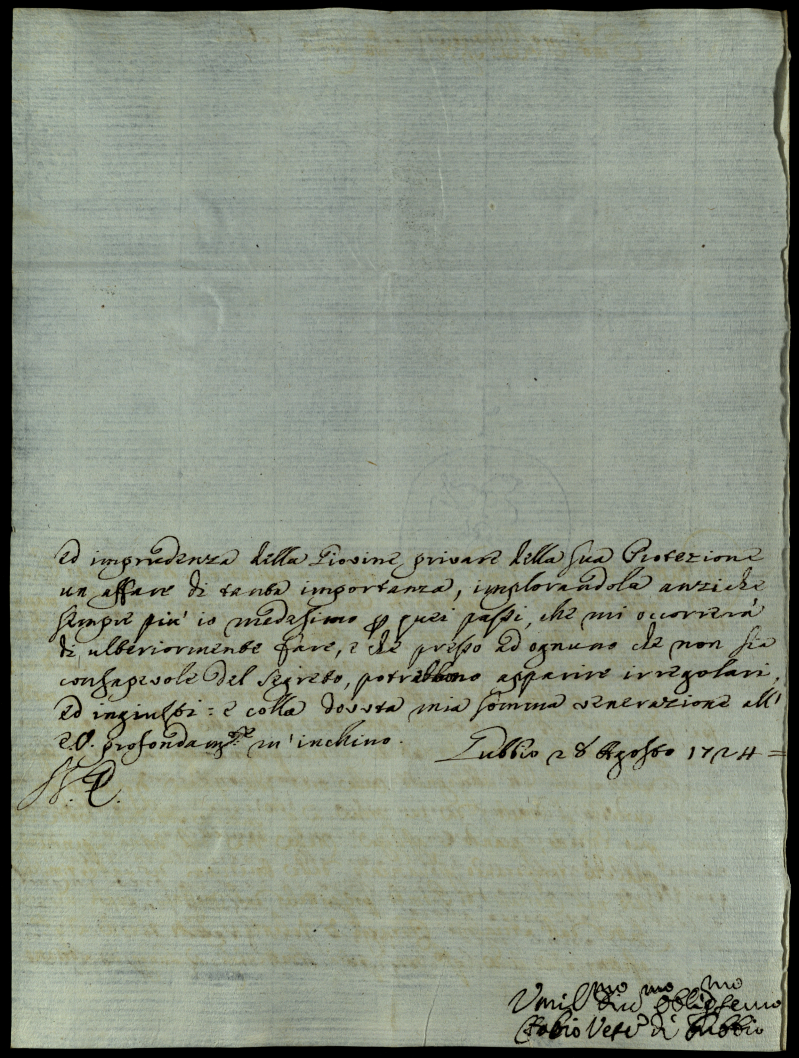 ed imprudenza della Giovine, privare della sua Protezione
un affare di tanta importanza, implorandola anzi che
sempre più io medesimo per quei passi, che mi occorrerà
di ulteriormente fare, e che presso ad ognuno che non sia
consapevole del segreto, potrebbono apparire irregolari,
ed ingiusti: e colla dovuta mia somma venerazione all'
E.V. profondam.te m'inchino. Gubbio 28 Agosto 1724 =
Umil.mo Div.mo Oblig.mo Servo
Fabio Vesc.o di Gubbio